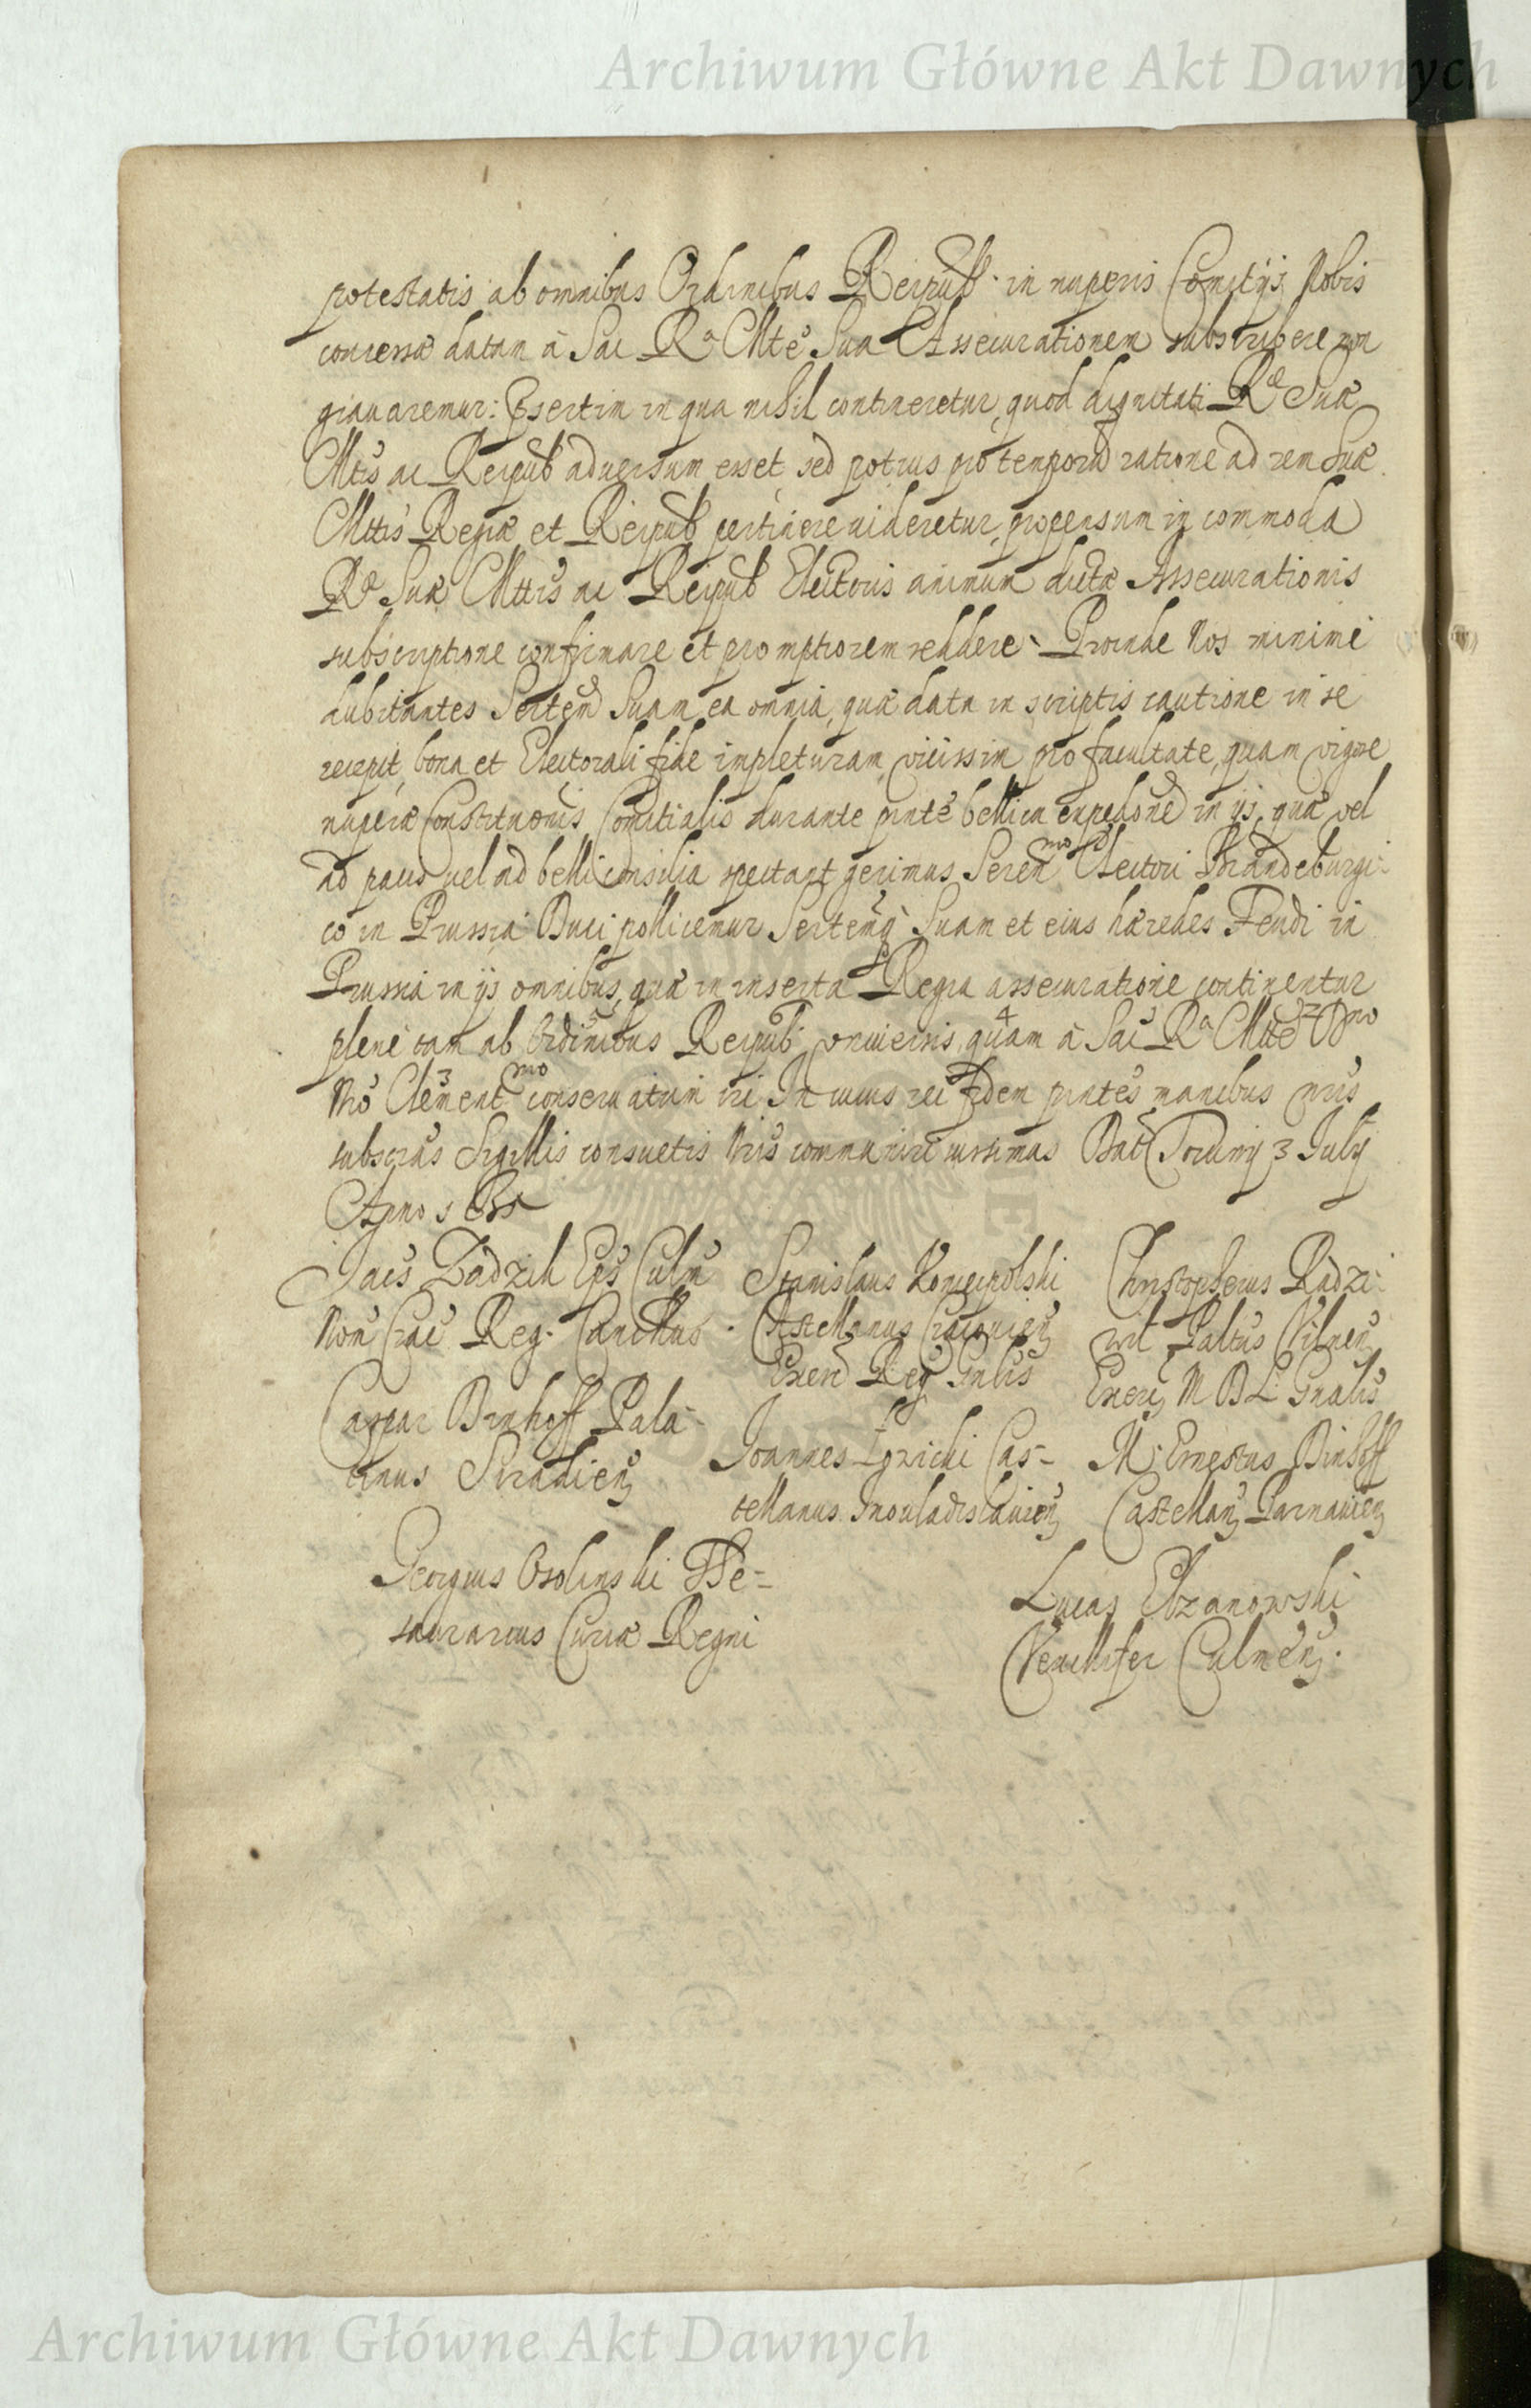 Archiwum Główne Akt Dawnych
potestatis ab omnibus Ordinibus Reipub. in nuperis Comitijs Nobis
concessæ datam à Sac Ra Mte Sua Assecurationem subscribere non
grauaremur: Psertim in qua nihil contineretur, quod dignitati Ræ Suæ
Mtis ac Reipub aduersum esset sed potius pro temporũ ratione ad rem Suæ
Mttis Regiæ et Reipub pertinere uideretur, propensum in commoda
Ræ Suæ Mttis ac Reipub Electoris animum dictæ Assecurationis
subscriptione confirmare et promptiorem reddere. Proinde Nos minimè
dubitantes Sertem Suam ea omnia, quæ data in scriptis cautione in se
recepit, bona et Electorali fide impleturam, vicissim pro facultate, quam vigore
nuperæ Constituõis Comitialis durante pnte bellica expedõne in ijs, quæ vel
ad pacis uel ad belli consilia spectant gerimus Serenmo Electori Brandeburgi-
co in Prussia Duci pollicemur Sertemq Suam et eius hæredes Feudi in
Prussia in ijs omnibus, quæ in inserta Regia assecuratione continentur
plenè tam ab Ordinibus Reipub. vniuersis, quam à Sac Ra Mtte Dno
Nro Clementmo conseruatum iri In cuius rei fidem pntes manibus nris
subscras Sigillis consuetis Nris communiri iussimus Dat Torunij 3 July
Anno
Jacs Zadzik Eps Culm
Nom Crac Reg. Cancllus.
Stanislaus Koniecpolski
Castellanus Cracouien
Exerc Reg Gnlis
Christopherus Radzi-
wil Paltus Vilnen
Exerc M D L Gnalis
Caspar Dinhoff Pala-
tinus Siradien
Joannes Lowicki Cas-
tellanus Inouladislauien
M. Ernestus Dinhoff
Castellan Parnauien
Georgius Osolinski The-
saurarius Curiæ Regni
Lucas Elzanowski
Vexillifer Culmen.
Archiwum Główne Akt Dawnych